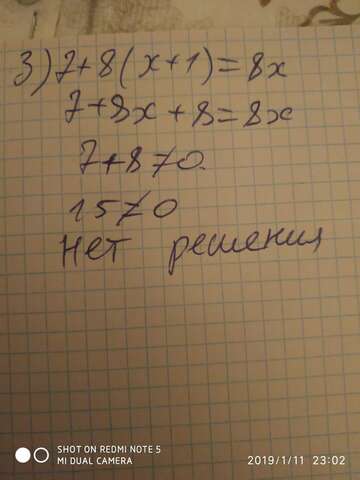 3) 7+8(x+1)=8x
7+8x+8=8x
7+8≠0.
15≠0
Нет решения
SHOT ON REDMI NOTE 5
MI DUAL CAMERA
2019/1/11 23:02